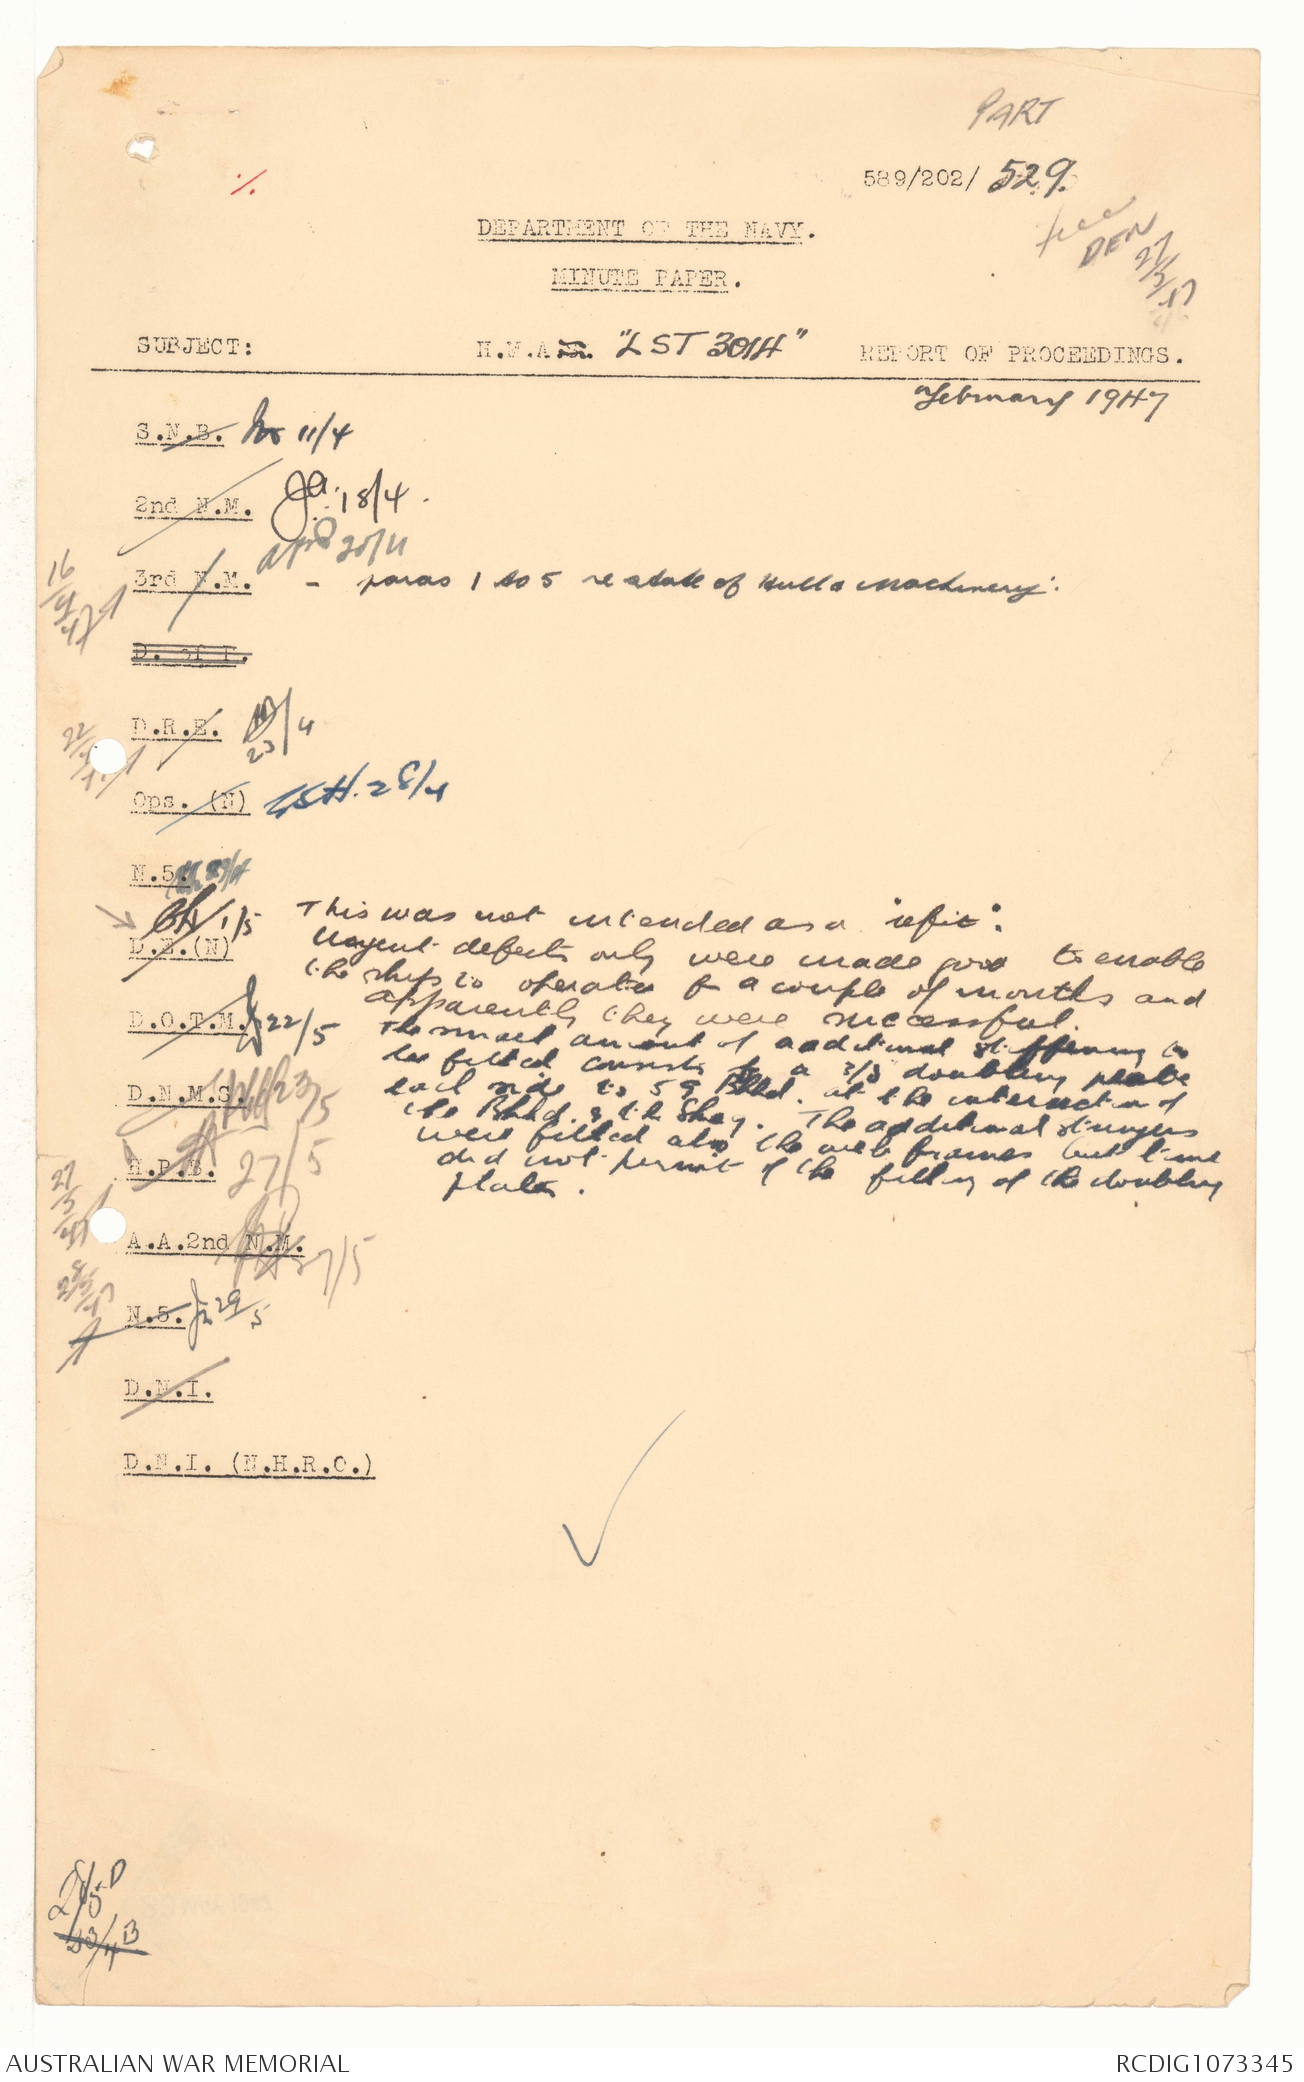 PART
589/202/ 529.
DEPARTMENT OF THE NAVY.
DEN
27/3/47
MINUTE PAPER.
SUBJECT: H.M.A.S. "LST 3014" REPORT OF PROCEEDINGS.
February 1947
S.N.B. 11/4
2nd N.M. 18/4.
3rd N.M. - paras 1 to 5 re state of Hull & Machinery.
16/4/47
D. of P.
D.R.E. 23/4
Ops. (N) 28/4
N.5.
1/5 This was not intended as a "refit".
D.E.(N) Urgent defects only were made good to enable
the ships to operate for a couple of months and
apparently they were successful.
D.O.T.M. 22/5 The small amount of additional stiffening to
be fitted consists of a 3/8 doubling plate
each side to 59 Bhd. at the intersection of
D.N.M.S. 23/5 the Bhd. & the Skeg. The additional stringers
were fitted also the web frames but time
H.P.B. 27/5 did not permit of the fitting of the doubling
plates.
27/5/47
A.A.2nd N.M. 27/5
28/5/47
N.5. 29/5
D.N.I.
D.N.I. (N.H.R.O.)
D
B
AUSTRALIAN WAR MEMORIAL RCDIG1073345